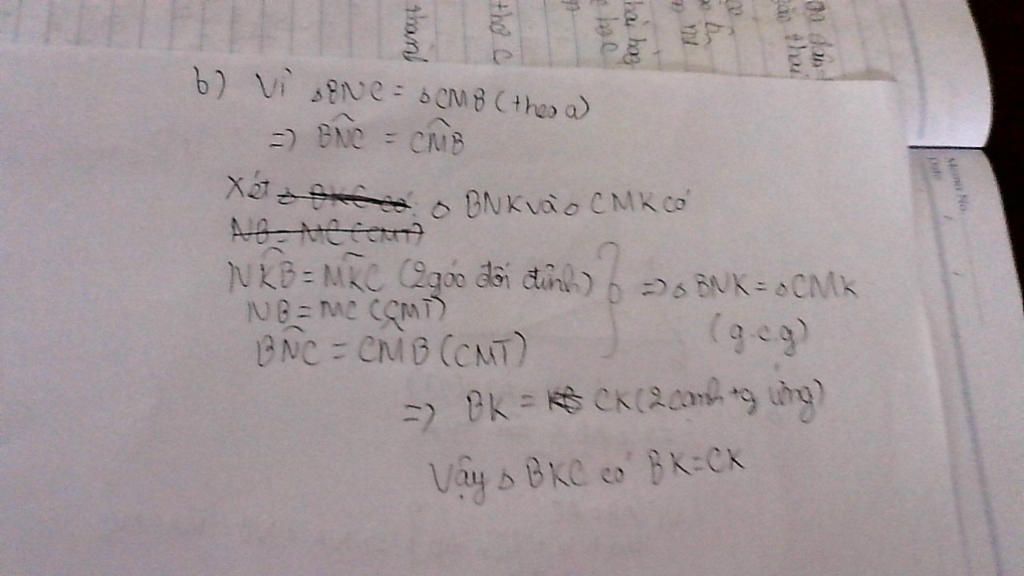 b) Vì ΔBNC = ΔCMB (theo a)
=> BN̂C = CM̂B
Xét Δ BKC có Δ BNK và Δ CMK có
NB = MC (CMT)
NK̂B = MK̂C (2 góc đối đỉnh)
NB = MC (CMT)
BN̂C = CM̂B (CMT)
=> Δ BNK = Δ CMK
(g.c.g)
=> BK = CK (2 cạnh tg ứng)
Vậy Δ BKC có BK = CK